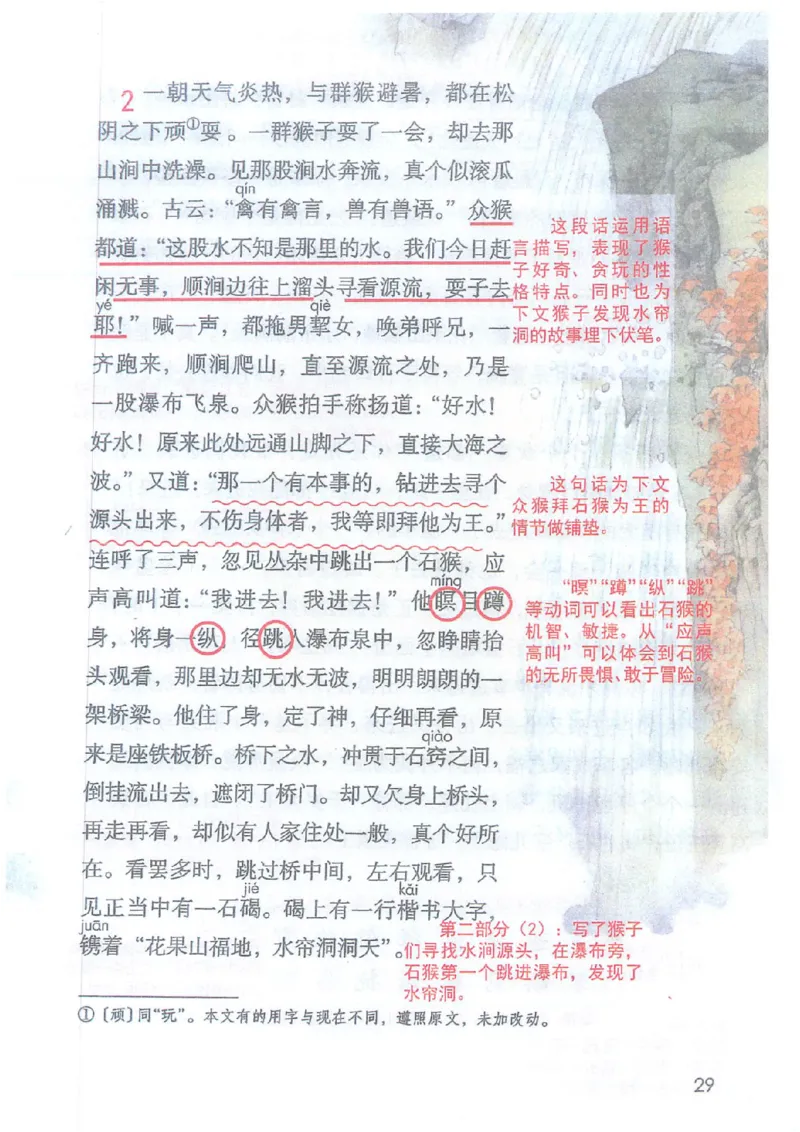 2 一朝天气炎热，与群猴避暑，都在松
阴之下顽①耍。一群猴子耍了一会，却去那
山涧中洗澡。见那股涧水奔流，真个似滚瓜
qín
涌溅。古云：“禽有禽言，兽有兽语。”众猴
都道：“这股水不知是那里的水。我们今日赶
闲无事，顺涧边往上溜头寻看源流，耍子去
yé qiè
耶！”喊一声，都拖男挈女，唤弟呼兄，一
齐跑来，顺涧爬山，直至源流之处，乃是
一股瀑布飞泉。众猴拍手称扬道：“好水！
好水！原来此处远通山脚之下，直接大海之
波。”又道：“那一个有本事的，钻进去寻个
源头出来，不伤身体者，我等即拜他为王。”
连呼了三声，忽见丛杂中跳出一个石猴，应
míng
声高叫道：“我进去！我进去！”他瞑目蹲
身，将身一纵，径跳入瀑布泉中，忽睁睛抬
头观看，那里边却无水无波，明明朗朗的一
架桥梁。他住了身，定了神，仔细再看，原
qiào
来是座铁板桥。桥下之水，冲贯于石窍之间，
倒挂流出去，遮闭了桥门。却又欠身上桥头，
再走再看，却似有人家住处一般，真个好所
在。看罢多时，跳过桥中间，左右观看，只
jié kǎi
见正当中有一石碣。碣上有一行楷书大字，
juān
镌着“花果山福地，水帘洞洞天”。
这段话运用语
言描写，表现了猴
子好奇、贪玩的性
格特点。同时也为
下文猴子发现水帘
洞的故事埋下伏笔。
这句话为下文
众猴拜石猴为王的
情节做铺垫。
“瞑”“蹲”“纵”“跳”
等动词可以看出石猴的
机智、敏捷。从“应声
高叫”可以体会到石猴
的无所畏惧、敢于冒险。
第二部分（2）：写了猴子
们寻找水涧源头，在瀑布旁，
石猴第一个跳进瀑布，发现了
水帘洞。
①〔顽〕同“玩”。本文有的用字与现在不同，遵照原文，未加改动。
29